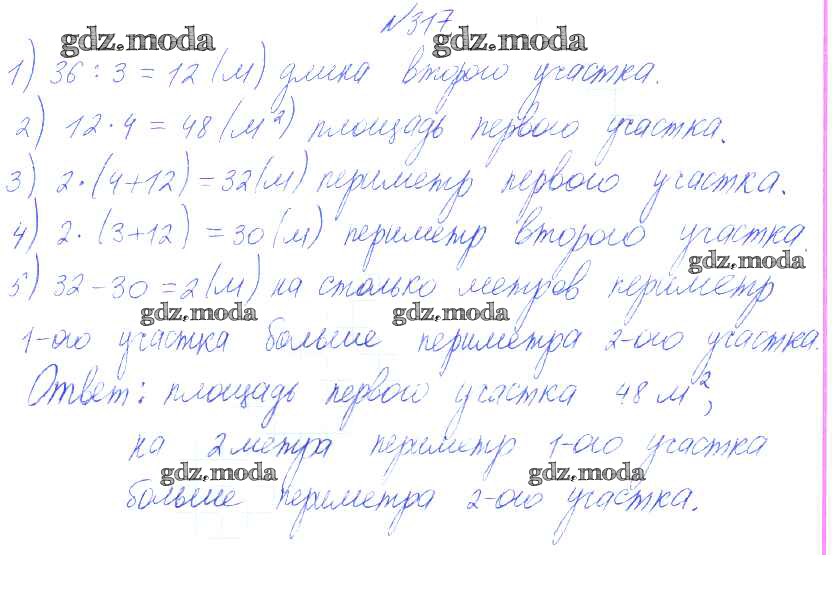 №317
gdz.moda gdz.moda
1) 36 : 3 = 12 (м) длина второго участка.
2) 12 · 4 = 48 (м²) площадь первого участка.
3) 2 · (4+12) = 32 (м) периметр первого участка.
4) 2 · (3+12) = 30 (м) периметр второго участка
gdz.moda
5) 32 – 30 = 2 (м) на столько метров периметр
gdz.moda gdz.moda
1-ого участка больше периметра 2-ого участка.
Ответ: площадь первого участка 48 м²,
на 2 метра периметр 1-ого участка
gdz.moda gdz.moda
больше периметра 2-ого участка.